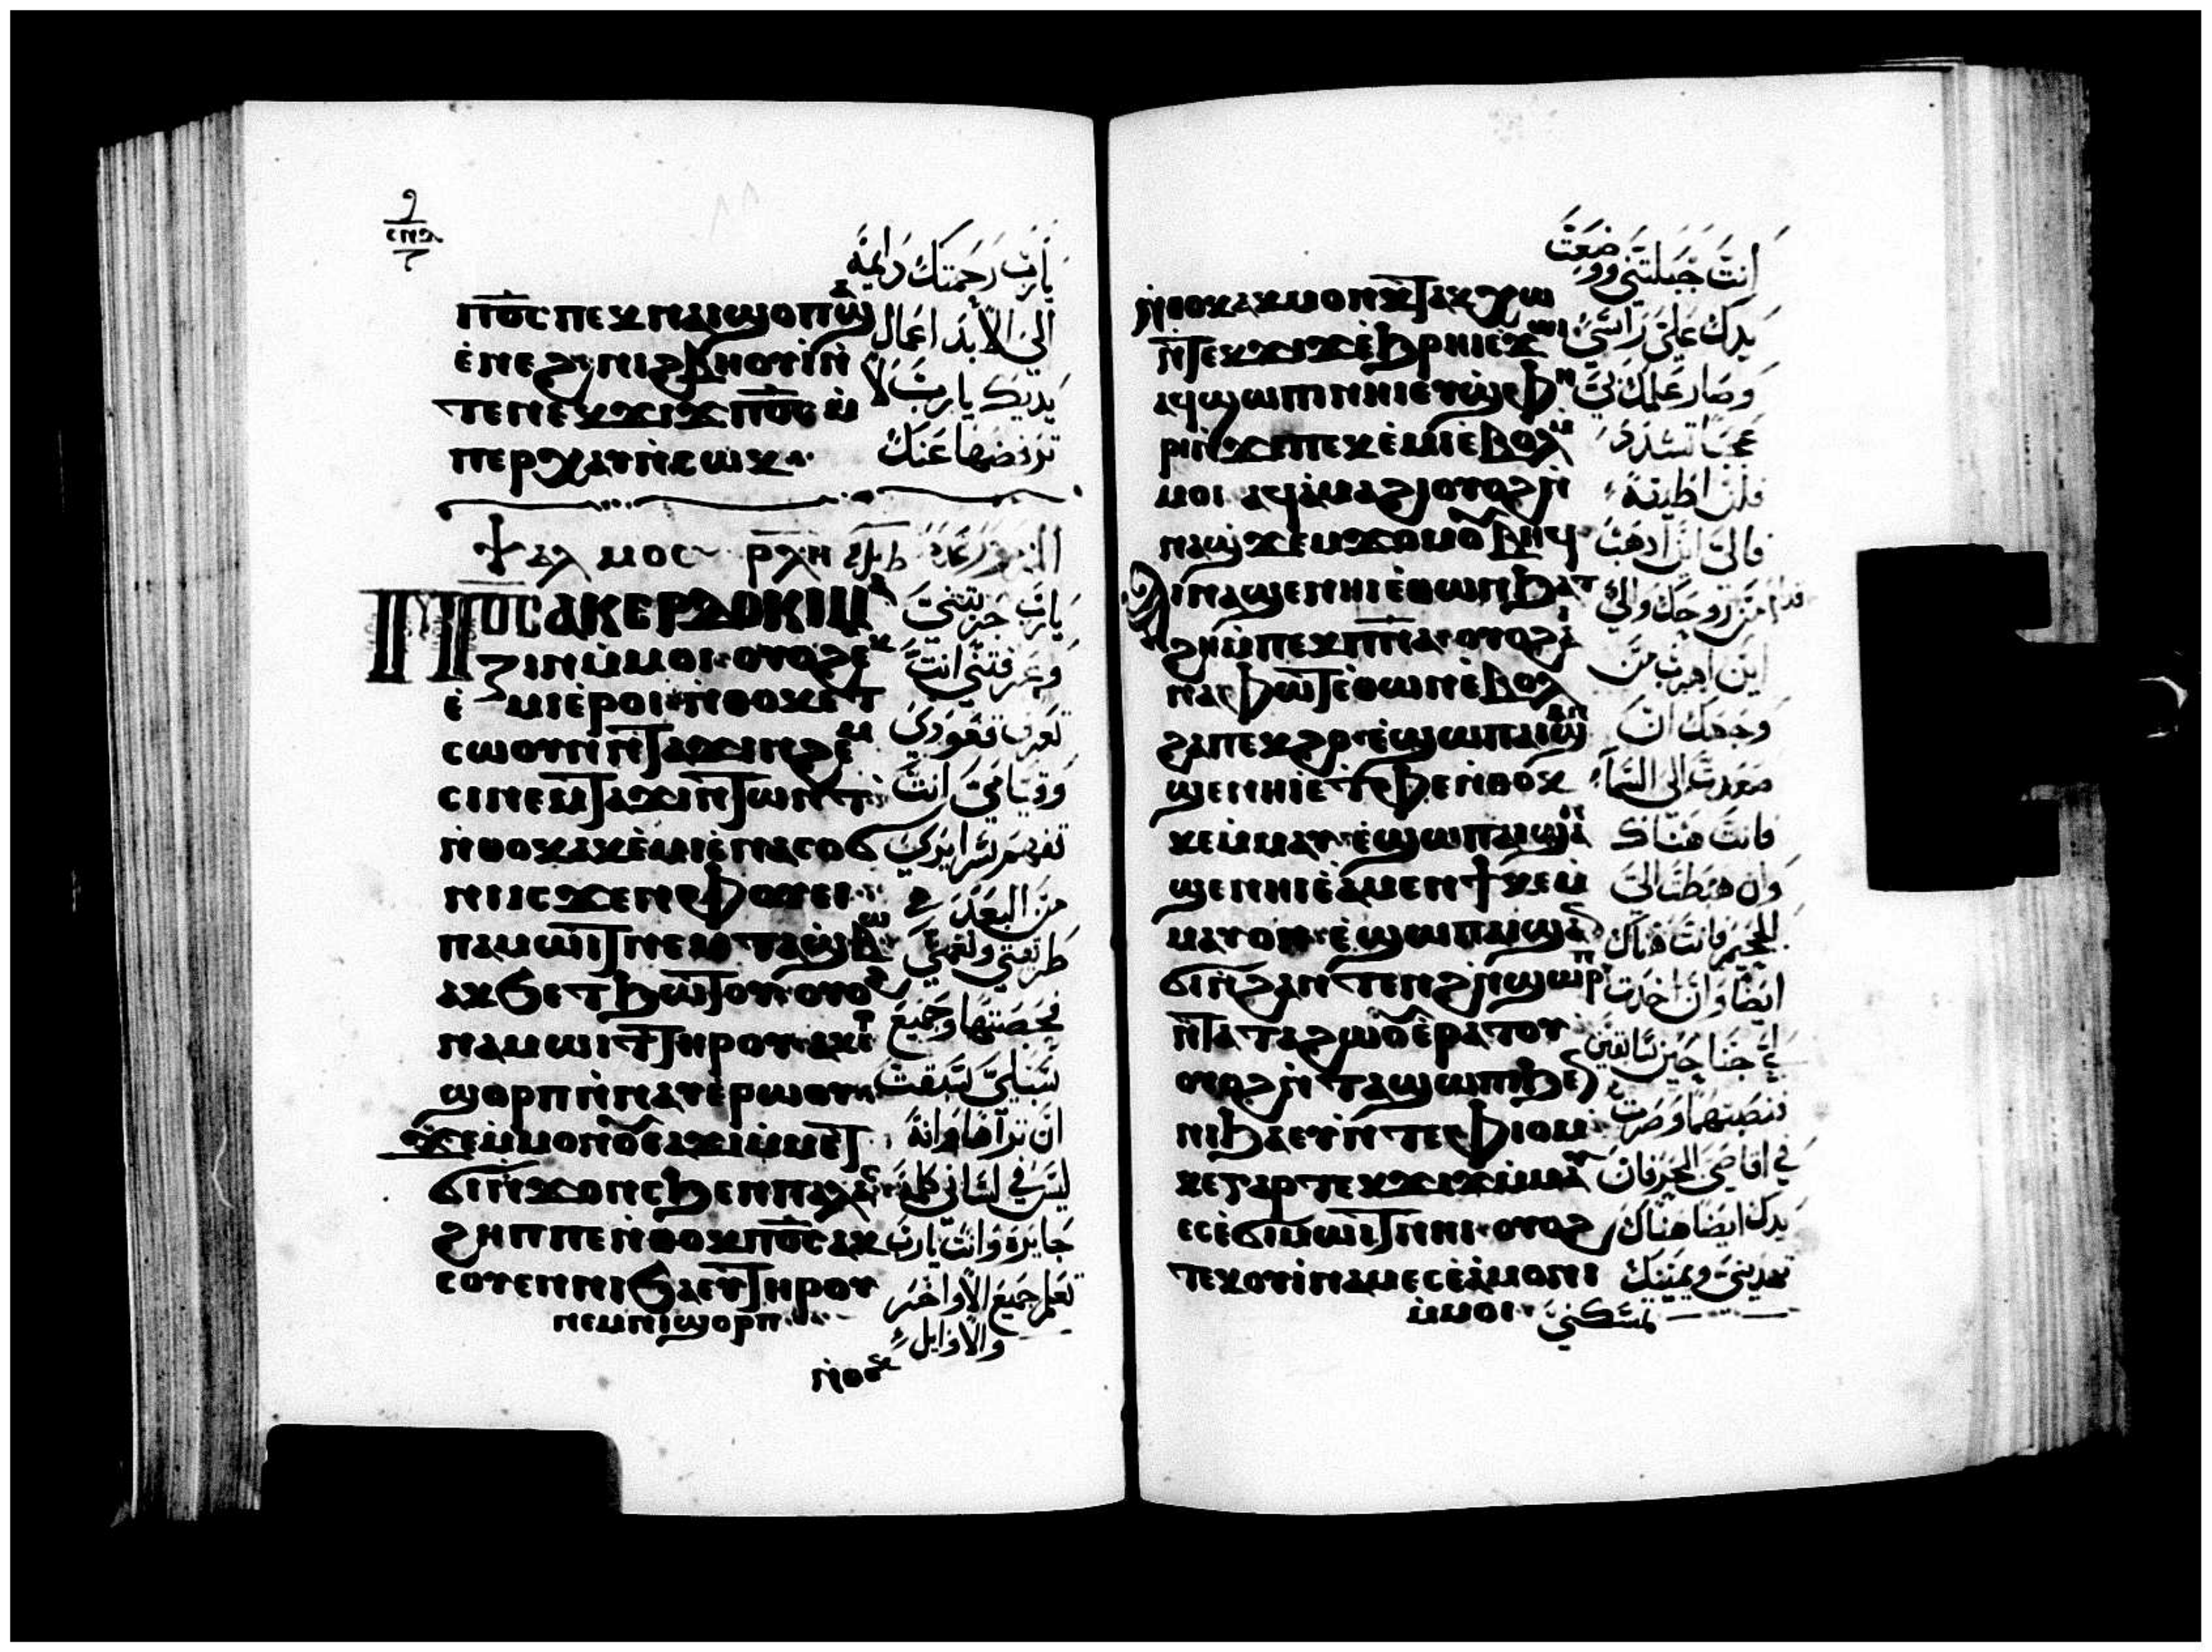 ⲡ̅ⲟ̅ⲥ̅ ⲡⲉⲕⲛⲁⲓ ϣⲟⲡ ϣⲁ
ⲉ̀ⲛⲉϩ ⲛⲓϩⲃⲏⲟⲩⲓ ⲛ̀
ⲧⲉ ⲛⲉⲕϫⲓϫ ⲡ̅ⲟ̅ⲥ̅ ⲙ̀
ⲡⲉⲣⲭⲁⲩ ⲛ̀ⲥⲱⲕ
يارب رحمتك دايمة
الى الابد اعمال
يديك يارب لا
ترفضها عنك
ⲯⲁⲗⲙⲟⲥ ⲣⲗⲏ
ⲡ̅ⲟ̅ⲥ̅ ⲁⲕⲉⲣⲇⲟⲕⲓⲙⲁ
ⲍⲓⲛ ⲙ̀ⲙⲟⲓ ⲟⲩⲟϩ ⲁⲕ
ⲉ̀ⲙⲓ ⲉ̀ⲣⲟⲓ ⲛ̀ⲑⲟⲕ ⲉⲧ
ⲥⲱⲟⲩⲛ ⲛ̀ⲧⲁϫⲓⲛϩⲉⲙ
ⲥⲓ ⲛⲉⲙ ⲧⲁϫⲓⲛⲧⲱⲛⲧ
ⲛ̀ⲑⲟⲕ ⲁⲕⲉ̀ⲙⲓ ⲉ̀ⲛⲁⲥⲟϭ
ⲛⲓ ⲓⲥϫⲉⲛ ⲫⲟⲩⲉⲓ
ⲡⲁⲙⲱⲓⲧ ⲛⲉⲙ ⲧⲁϣⲃⲱ
ⲁⲕϭⲉⲧϧⲱⲧⲟⲩ ⲟⲩⲟϩ
ⲛⲁⲙⲱⲓⲧ ⲧⲏⲣⲟⲩ ⲁⲕⲉⲣ
ϣⲟⲣⲡ ⲛ̀ⲛⲁⲩ ⲉ̀ⲣⲱⲟⲩ
ϫⲉ ⲙ̀ⲙⲟⲛ
ϭⲓ ⲛ̀ϫⲟⲛⲥ ϧⲉⲛ ⲡⲁⲗⲁⲥ
ϩⲏⲡⲡⲉ ⲛ̀ⲑⲟⲕ ⲡ̅ⲟ̅ⲥ̅ ⲁⲕ
ⲥⲟⲩⲉⲛ ⲛⲓϧⲁⲉⲩ ⲧⲏⲣⲟⲩ
ⲛⲉⲙ ⲛⲓϣⲟⲣⲡ
يارب جربتني
وعرفتني انت
تعرف قعودي
وقيامي انت
تفهم سرايري
من البعد
طريقي
فحصتها وجميع
سبلي سبقت
ان تراها وانه
ليس في لساني كلمة
جايرة وانت يارب
تعلم جميع الاواخر
والاوايل
ⲛ̀ⲑⲟⲕ
ⲛ̀ⲑⲟⲕ ⲁⲕⲙⲟⲛⲕⲧ ⲁⲕⲭⲱ
ⲛ̀ⲧⲉⲕϫⲓϫ ⲉ̀ϩⲣⲏⲓ ⲉ̀ϫⲱⲓ
ⲁϥϣⲱⲡⲓ ⲛⲏⲓ ⲉⲩϣⲫⲏ
ⲣⲓ ⲛ̀ϫⲉ ⲡⲉⲕⲉ̀ⲙⲓ ⲉ̀ⲃⲟⲗ ⲙ̀
ⲙⲟⲓ ⲁϥⲁ̀ⲙⲁϩⲓ ⲟⲩⲟϩ ⲛ̀
ⲛⲁϣϫⲉⲙϫⲟⲙ ⲟⲩⲃⲏϥ
ⲁⲓⲛⲁϣⲉ ⲛⲏⲓ ⲉ̀ⲑⲱⲛ ϧⲁⲧ
ϩⲏ ⲙ̀ⲡⲉⲕⲡ̅ⲛ̅ⲁ̅ ⲟⲩⲟϩ ⲁⲓ
ⲛⲁⲫⲱⲧ ⲉ̀ⲑⲱⲛ ⲉ̀ⲃⲟⲗ
ϩⲁ ⲡⲉⲕϩⲟ ⲉ̀ϣⲱⲡ ⲁⲓϣⲁⲛ
ϣⲉ ⲛⲏⲓ ⲉ̀ⲧⲫⲉ ⲛ̀ⲑⲟⲕ
ⲕⲉⲙ̀ⲙⲁⲩ ⲉ̀ϣⲱⲡ ⲁⲓϣⲁⲛ
ϣⲉ ⲛⲏⲓ ⲉ̀ⲁ̀ⲙⲉⲛϯ ⲕⲉⲙ̀
ⲙⲁⲩ ⲟⲛ ⲉ̀ϣⲱⲡ ⲁⲓϣⲁⲛ
ϭⲓ ⲛ̀ϩⲁⲛⲧⲉⲛϩ
ⲛ̀ⲧⲁⲧⲁϩⲱⲟⲩ ⲉ̀ⲣⲁⲧⲟⲩ
ⲟⲩⲟϩ ⲛ̀ⲧⲁϣⲱⲡⲓ ϧⲉⲛ
ⲛⲓϧⲁⲉⲩ ⲛ̀ⲧⲉ ⲫⲓⲟⲙ
ⲕⲉ ⲅⲁⲣ ⲧⲉⲕϫⲓϫ ⲙ̀ⲙⲁⲩ
ⲉⲥⲉ̀ϭⲓⲙⲱⲓⲧ ⲛⲏⲓ ⲟⲩⲟϩ
ⲧⲉⲕⲟⲩⲓⲛⲁⲙ ⲉⲥⲉ̀ⲁ̀ⲙⲟⲛⲓ
ⲙ̀ⲙⲟⲓ
انت جبلتني ووضعت
يدك على راسي
وصار علمك لي
عجبا تشدد
فلن اطيقه
فالى اين اذهب
من روحك والى
اين اهرب من
وجهك ان
صعدت الى السماء
فانت هناك
وان هبطت الى
الجحيم فانت هناك
ايضا وان اخذت
لي جناحين
فنصبتهما وصرت
في اقاصي البحر فان
يدك ايضا هناك
تهديني ويمينك
تمسكني